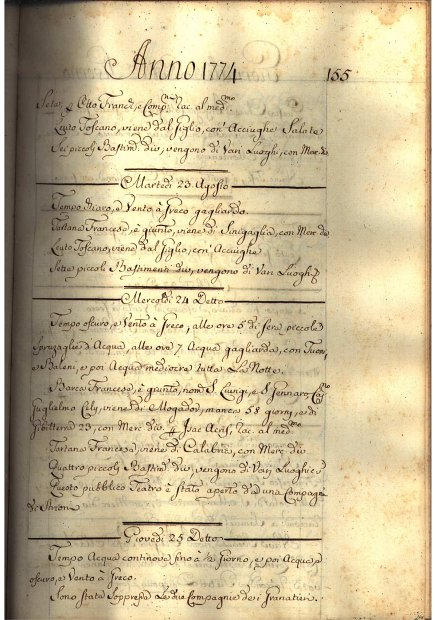 Anno 1774 155
Seta, e Otto Franchi, e Comp. Rac. al med.mo
Leuto Toscano, viene dal Giglio, con Acciughe Salate
Sei piccoli Bastim. div. vengono di Vari Luoghi, con Merc.
Martedì 23 Agosto
Tempo chiaro, e Vento à Greco gagliardo.
Tartana Francese, è giunta, viene di Sinigaglia, con Merc. div.
Leuto Toscano, viene dal Giglio, con Acciughe
Sette piccoli Bastimenti div. vengono di Vari Luoghi
Mercoldì 24 Detto
Tempo oscuro, e Vento à Greco, alle ore 5 di sera piccola
Spruzaglia d'Acqua, alle ore 7 Acqua gagliarda, con Tuoni,
e Baleni, e poi Acqua mediocre tutta La Notte.
Barca Francese, è giunta, nom. S. Luigi, e S. Gennaro, Cap.no
Guglielmo Cily, viene di Mogador, manca 58 giorni, e di
Gibilterra 23, con Merc. div. Isac Acris, Rac. al med.mo
Tartana Francese, viene di Calabria, con Merc. div.
Quattro piccoli Bastim. div. vengono di Varj Luoghi
Questo pubblico Teatro è stato aperto da una Compagnia
di Strioni
Giovedì 25 Detto
Tempo Acqua continova sino à ½ Giorno, e poi Acqua, e
oscuro, e Vento à Greco.
Sono stata Soppressa Le due Compagnie de i Granatieri.